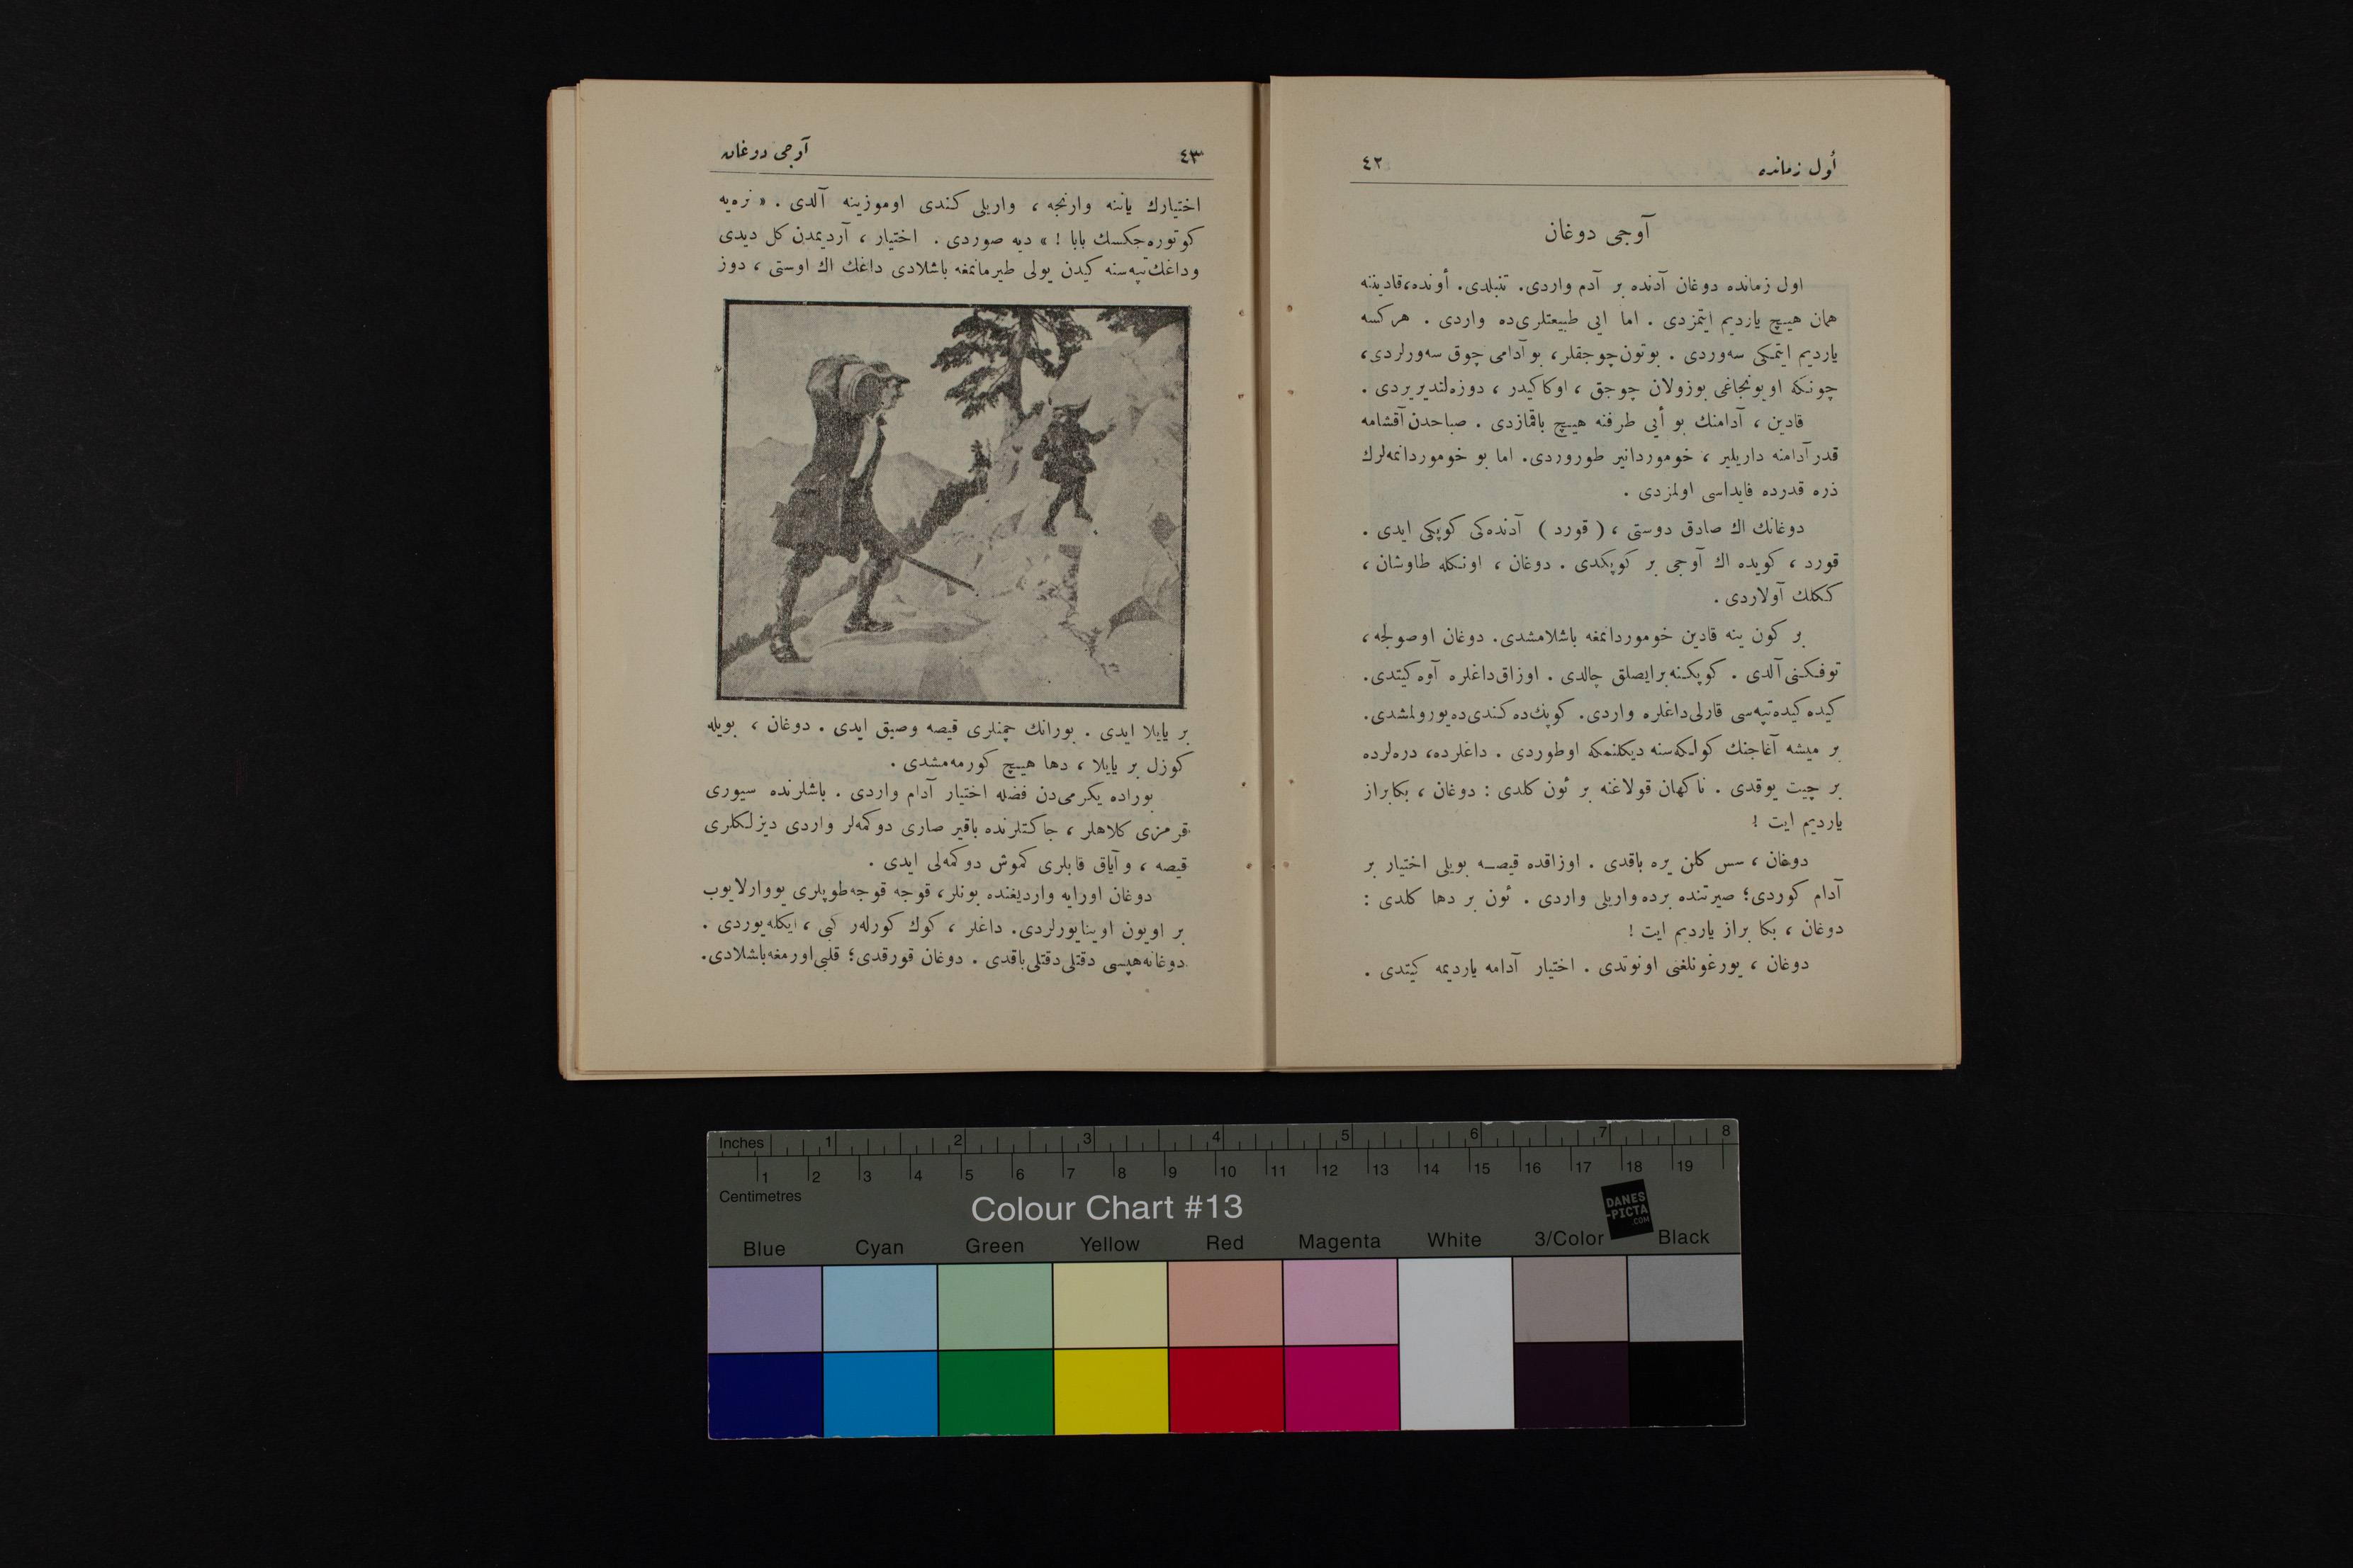 أول زمانده ٤٢
آوجی دوغان
اول زمانده دوغان آدنده بر آدم واردی. تنبلدی. أونده، قادیننه
همان هیچ یاردیم ایتمزدی . اما ایی طبیعتلری ده واردی . هرکسه
یاردیم ایتمکی سه‌وردی . بوتون چوجقلر، بو آدامی چوق سه‌ورلردی،
چونکه اویونجاغی بوزولان چوجق ، اوکا کیدر ، دوزه‌لندیریردی .
قادین ، آدامنك بو أیی طرفنه هیچ باقمازدی . صباحدن آقشامه
قدر آدامنه داریلیر ، خوموردانیر طوروردی. اما بو خوموردانمه‌لرك
ذره قدرده فایداسی اولمزدی .
دوغانك اك صادق دوستی ، ( قورد ) آدنده‌کی کوپکی ایدی .
قورد ، کویده اك آوجی بر کوپکدی . دوغان ، اونکله طاوشان ،
ککلك آولاردی .
بر کون ینه قادین خوموردانمغه باشلامشدی. دوغان اوصولجه ،
توفکنی آلدی . کوپکنه برایصلق چالدی . اوزاق داغلره آوه کیتدی.
کیده کیده تپه‌سی قارلی داغلره واردی. کوپك ده کندی ده یورولمشدی.
بر میشه آغاجنك کولکه‌سنه دیکلنمکه اوطوردی . داغلرده، دره‌لرده
بر چیت یوقدی . ناکهان قولاغنه بر ئون کلدی : دوغان ، بکابراز
یاردیم ایت !
دوغان ، سس کلن یره باقدی . اوزاقده قیصه بویلی اختیار بر
آدام کوردی؛ صیرتنده برده واریلی واردی . ئون بر دها کلدی :
دوغان ، بکا براز یاردیم ایت !
دوغان ، یورغونلغنی اونوتدی . اختیار آدامه یاردیمه کیتدی .
٤٣ آوجی دوغان
اختیارك یاننه وارنجه ، واریلی کندی اوموزینه آلدی . « نره‌یه
کوتوره‌جکسك بابا ! » دیه صوردی . اختیار ، آردیمدن کل دیدی
وداغك تپه‌سنه کیدن یولی طیرمانمغه باشلادی داغك اك اوستی ، دوز
بر یایلا ایدی . بورانك چمنلری قیصه وصیق ایدی . دوغان ، بویله
کوزل بر یایلا ، دها هیچ کورمه‌مشدی .
بوراده یکرمی‌دن فضله اختیار آدام واردی . باشلرنده سیوری
قرمزی کلاهلر ، جاکتلرنده باقیر صاری دوکمه‌لر واردی دیزلکلری
قیصه ، و آیاق قابلری کموش دوکمه‌لی ایدی .
دوغان اورایه واردیغنده بونلر، قوجه قوجه طوپلری یووارلایوب
بر اویون اوینایورلردی. داغلر ، کوك کورلەر کبی ، ایکله‌یوردی .
دوغانه هپسی دقتلی دقتلی باقدی . دوغان قورقدی؛ قلبی اورمغه باشلادی.
Inches 1 2 3 4 5 6 7 8
1 2 3 4 5 6 7 8 9 10 11 12 13 14 15 16 17 18 19
Centimetres
Colour Chart #13
DANES
-PICTA
.COM
Blue Cyan Green Yellow Red Magenta White 3/Color Black